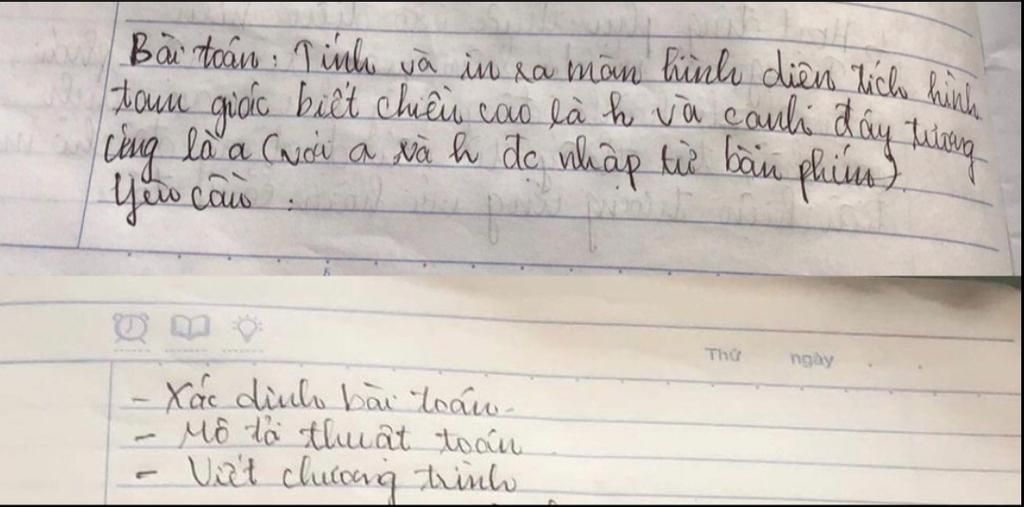 Bài toán: Tính và in ra màn hình diện tích hình
tam giác biết chiều cao là h và cạnh đáy tương
ứng là a (với a và h đc nhập từ bàn phím).
Yêu cầu:
Thứ ngày
- Xác định bài toán.
- Mô tả thuật toán
- Viết chương trình